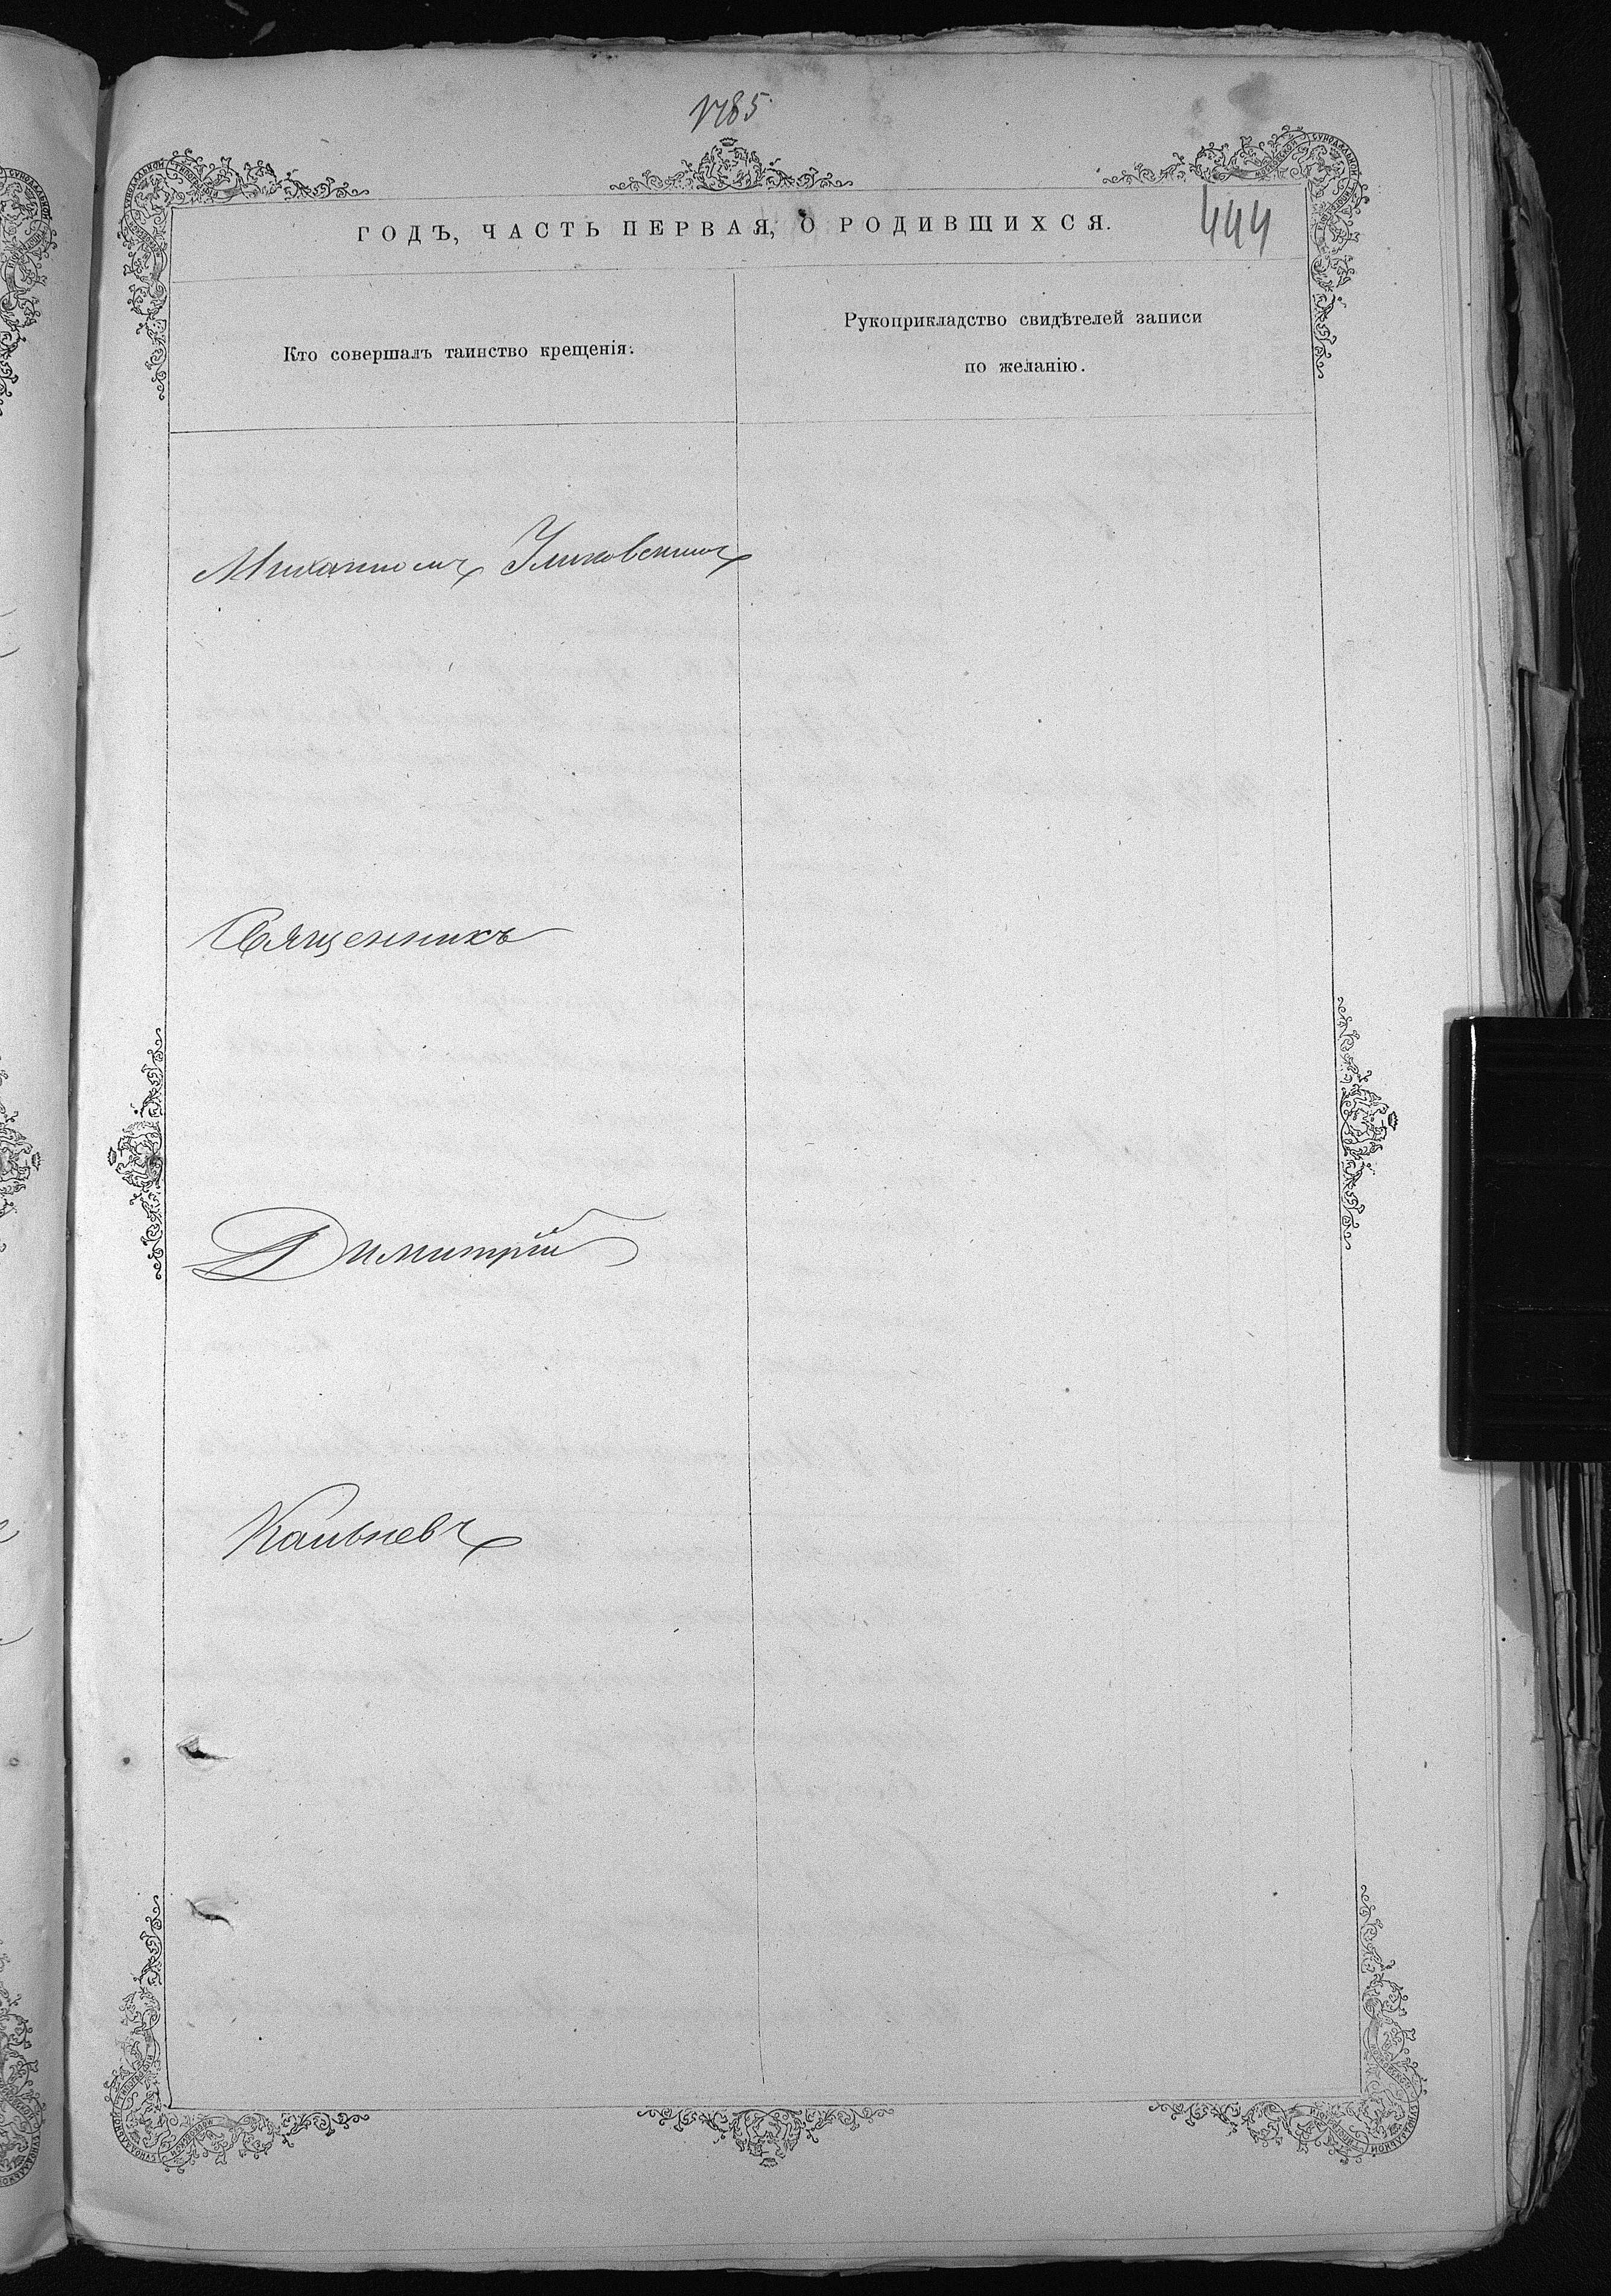 1785
ГОДЪ, ЧАСТЬ ПЕРВАЯ, О РОДИВШИХСЯ.
444
Кто совершалъ таинство крещенія.
Рукоприкладство свидѣтелей записи
по желанію.
Михаиломъ
Священникъ
Димитрій